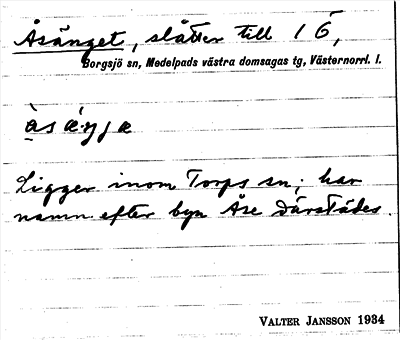 Åsänget, slåtter till 16,
Borgsjö sn, Medelpads västra domsagas tg, Västernorrl. l.
Ligger inom Torps sn; har
namn efter byn Åse därstädes.
VALTER JANSSON 1934